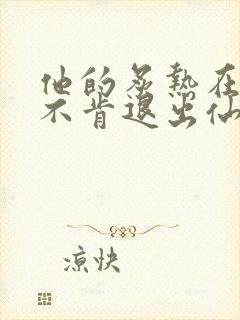 他的炙热在
不肯退出仙
凉快